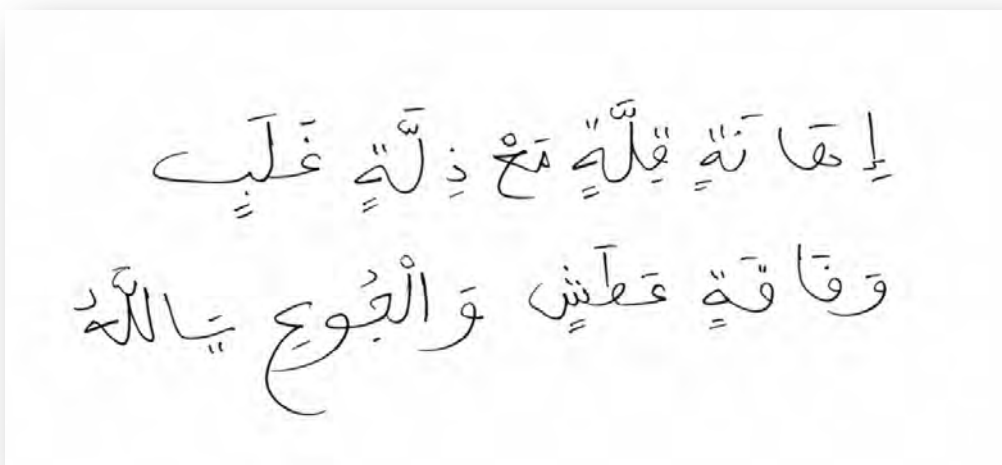 إِهَانَةٍ قِلَّةٍ مَعْ ذِلَّةٍ غَلَبٍ
وَفَاقَةٍ عَطَشٍ وَالْجُوعِ يَاللَّهُ